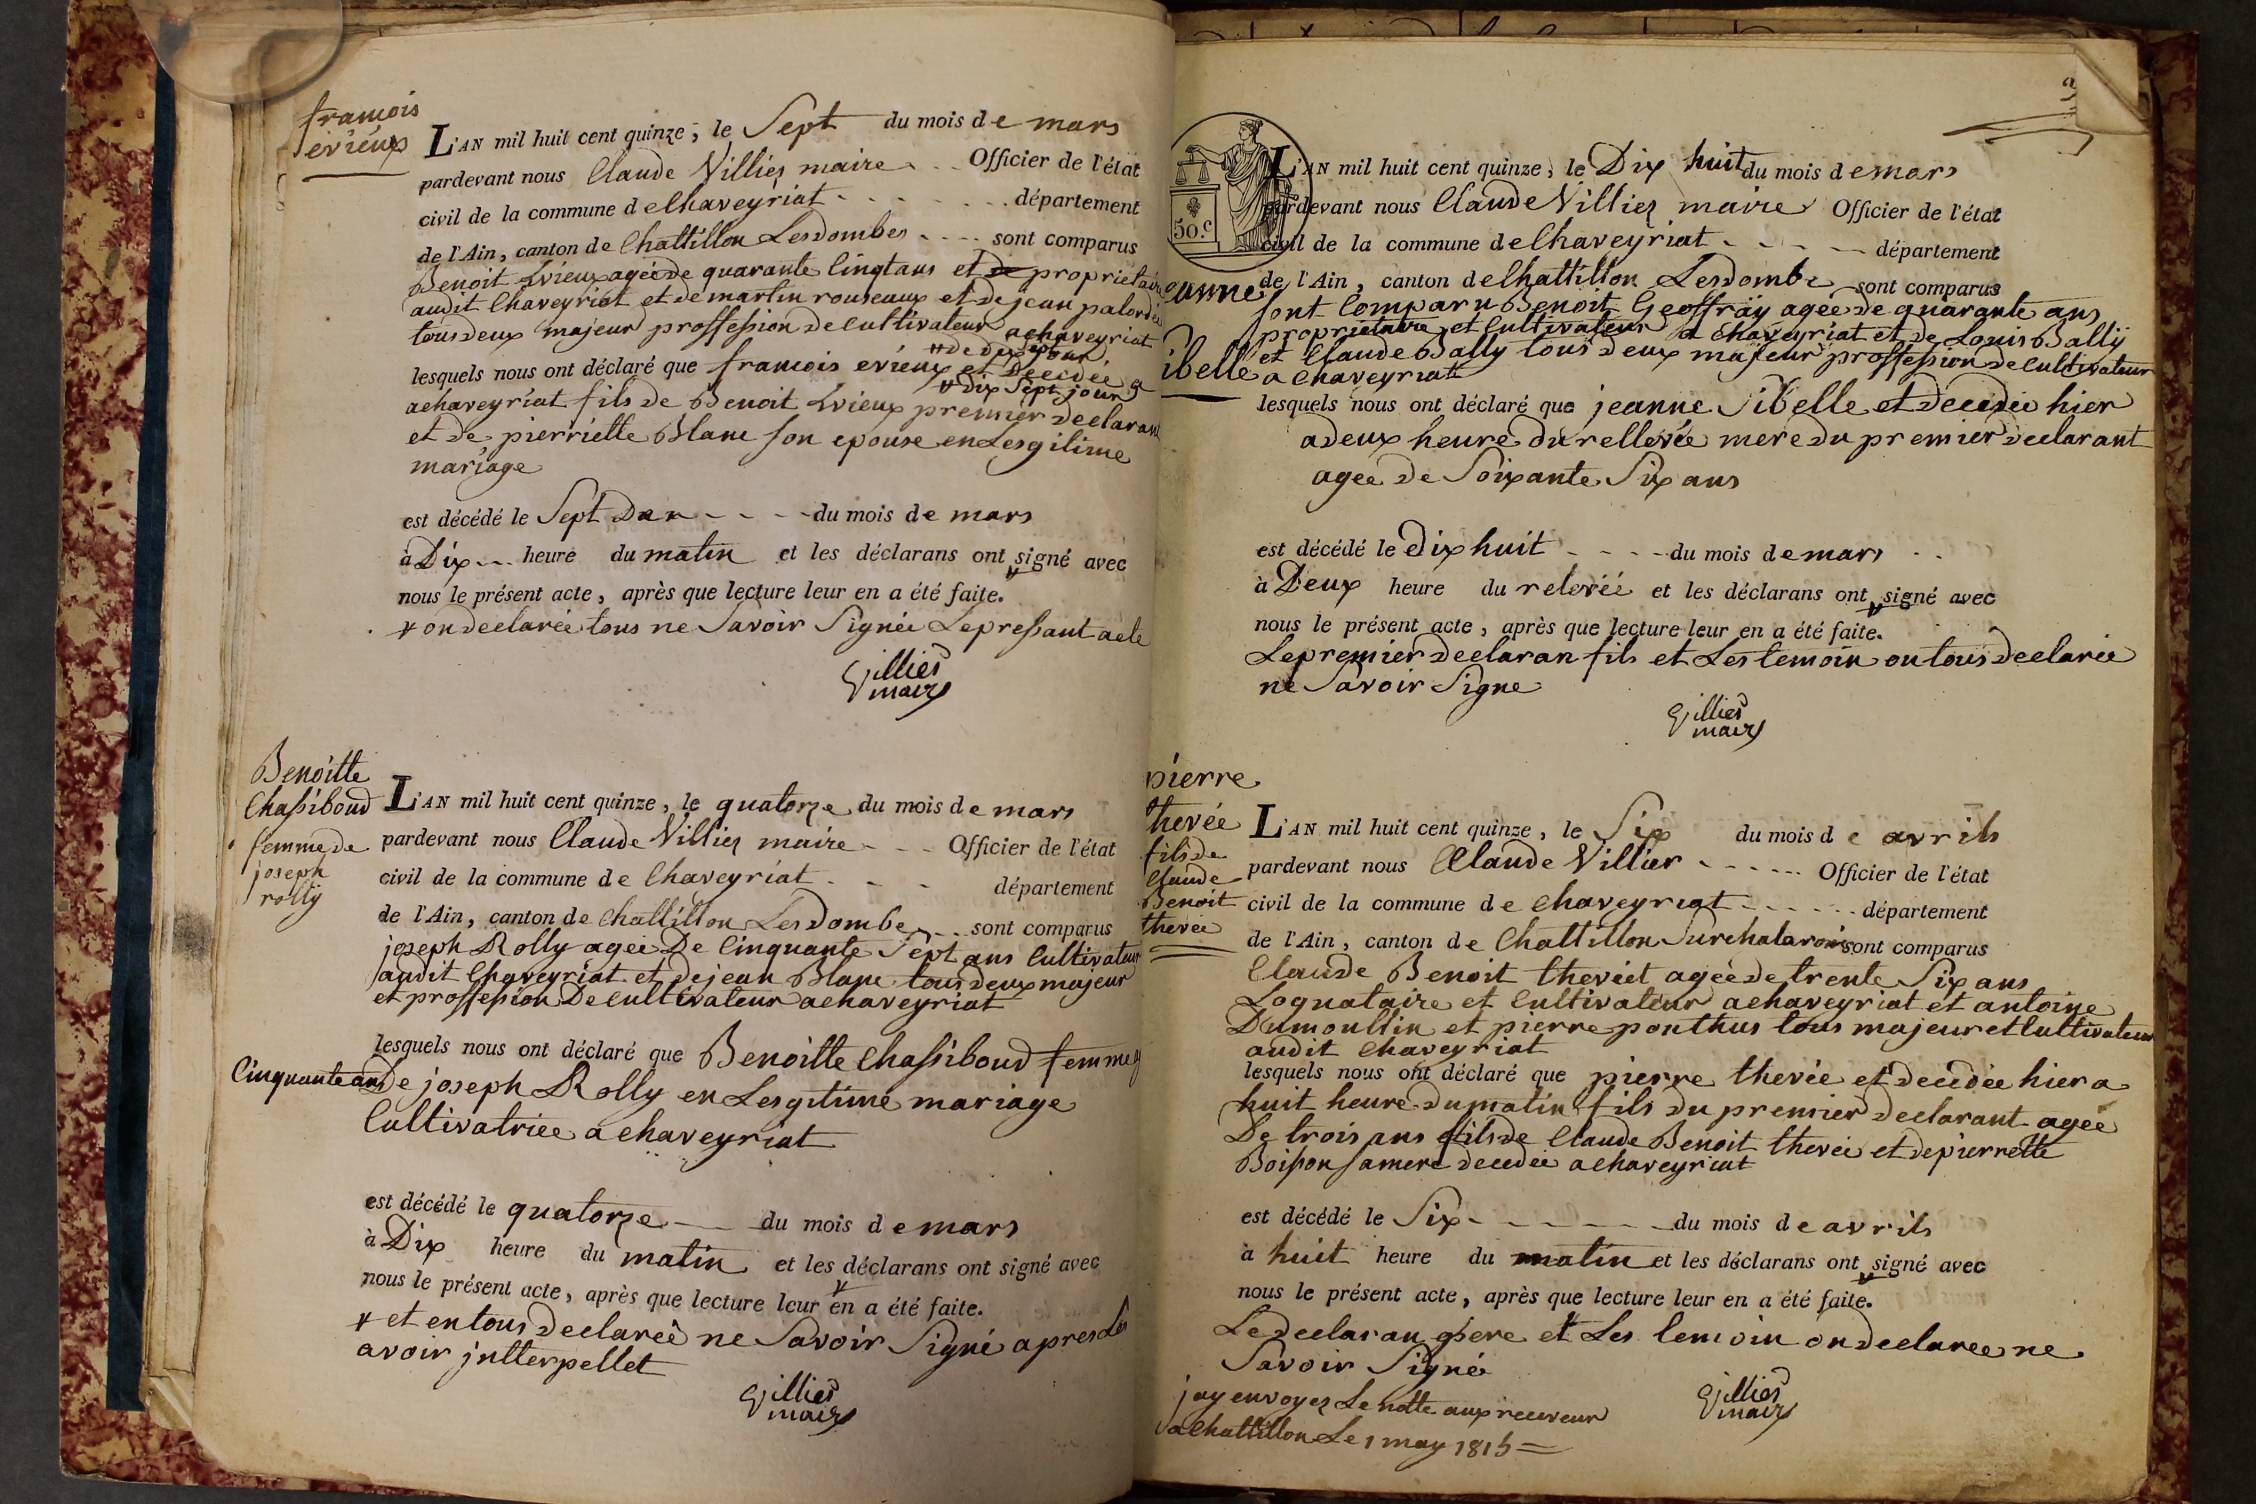 francois
evieux
L'AN mil huit cent quinze, le Sept du mois de mars
pardevant nous Claude Villier maire - - Officier de l'état
civil de la commune de Chaveyriat - - - - - - - département
de l'Ain, canton de Chattillon Lesdombes - - - - sont comparus
Benoit Evieux agée de quarante Cinqt ans et de proprietaire
audit Chaveyriat et de martin rouseaux et de jean
tous deux majeur proffession de Cultivateur achaveyriat
lesquels nous ont déclaré que francois evieux et Decedée a
# dix Sept jour
achaveyriat fils de Benoit Evieux premier declarant
et de pierriette Blanc son epouse en Lesgitime
mariage
est décédé le Sept - - - - du mois de mars
à Dix - - - heure du matin et les déclarans ont signé avec
nous le présent acte, après que lecture leur en a été faite.
on declarée tous ne Savoir Signée Le pressant acte
Villier
maire
Benoitte
Chassiboud
femme de
joseph
rolly
L'AN mil huit cent quinze, le quatorze du mois de mars
pardevant nous Claude Villier maire - - - Officier de l'état
civil de la commune de Chaveyriat - - - département
de l'Ain, canton de Chattillon Lesdombe - - sont comparus
joseph Rolly agée De Cinquante Sept ans Cultivateur
audit Chaveyriat et de jean Blanc tous deux majeur
et proffession De Cultivateur achaveyriat
lesquels nous ont déclaré que Benoitte Chassiboud femme
Cinquante ans De joseph Rolly en Lesgitime mariage
Cultivatrice a chaveyriat
est décédé le quatorze - - - du mois de mars
à Dix heure du matin et les déclarans ont signé avec
nous le présent acte, après que lecture leur en a été faite.
et en tous Declareé ne Savoir Signé apres Les
avoir jntterpellet
Villier
maire
50.c
eanne
ibelle
L'AN mil huit cent quinze, le Dix huit du mois de mars
pardevant nous Claude Villier maire Officier de l'état
civil de la commune de Chaveyriat - - - - département
de l'Ain, canton de Chattillon Lesdombe sont comparus
sont Comparu Benoit Geoffray agée de quarante ans
proprietaire et Cultivateur a Chaveyriat et de Louis Bally
et Claude Bally tous deux majeur proffession de Cultivateur
a Chaveyriat
lesquels nous ont déclaré que jeanne Sibelle et Decedée hier
a deux heure du rellevée mere du premier declarant
agee de Soixante Six ans
est décédé le Dix huit - - - - du mois de mars - -
à Deux heure du relevéé et les déclarans ont signé avec
nous le présent acte, après que lecture leur en a été faite.
Le premier declaran fils et Les temoin on tous declarée
ne Savoir Signe
Villier
maire
pierre
thevée
fils de
Claude
Benoit
thevée
L'AN mil huit cent quinze, le Six du mois de avrils
pardevant nous Claude Villier - - - - - Officier de l'état
civil de la commune de Chaveyriat - - - - - - département
de l'Ain, canton de Chattillon Surchalarons sont comparus
Claude Benoit theviet agée de trente Six ans
Loquataire et Cultivateur achaveyriat et antoine
Dumoullin et pierre ponthus tous majeur et Cultivateur
audit Chaveyriat
lesquels nous ont déclaré que pierre thevée et decedée hier a
huit heure du matin fils du premier declarant agée
De trois ans fils de Claude Benoit thevée et de pierrette
Boisson sa mere decedée achaveyriat
est décédé le Six - - - - - - - du mois de avrils
à huit heure du matin et les déclarans ont signé avec
nous le présent acte, après que lecture leur en a été faite.
Le declaran pere et Les temoin on declaree ne
Savoir Signé
Villier
maire
jay envoyez Le notte aux receveur
a Chattillon Le 1 may 1815